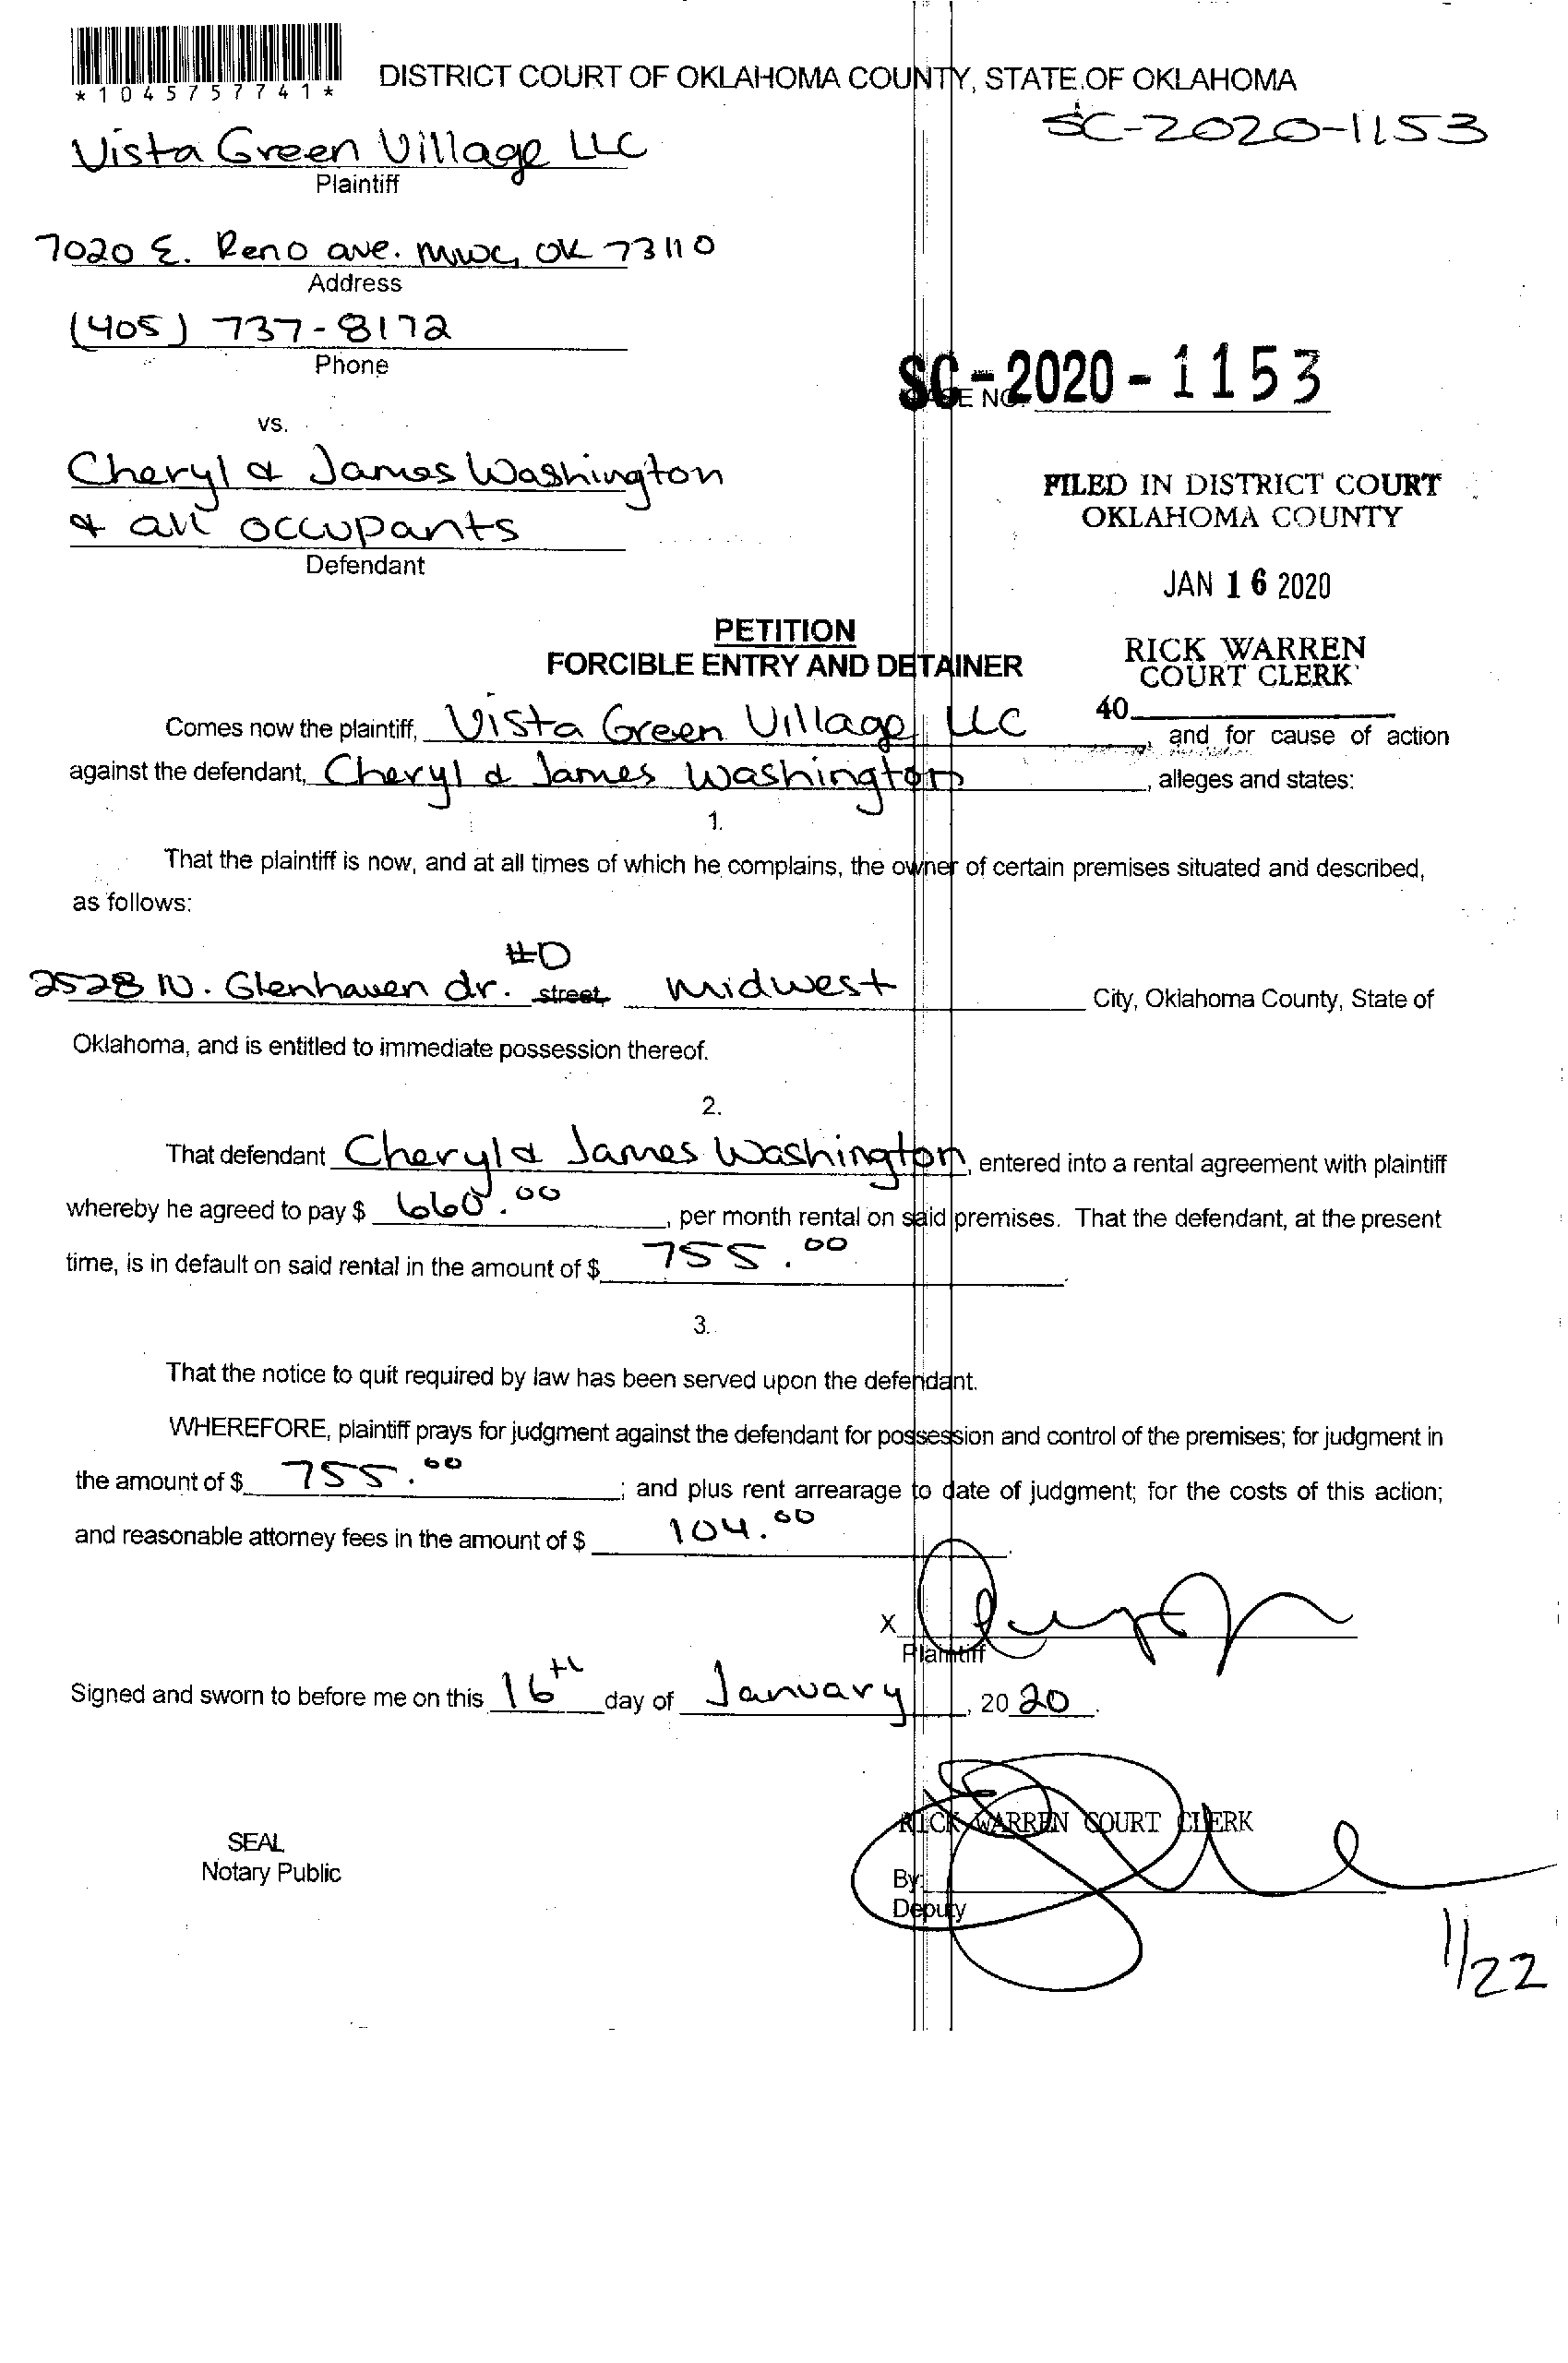 *1045757741*
DISTRICT COURT OF OKLAHOMA COUNTY, STATE OF OKLAHOMA
SC-2020-1153
Vista Green Village LLC
Plaintiff
7020 E. Reno ave. MWC, OK 73110
Address
(405) 737-8172
Phone
SC-2020-1153
CASE NO.
vs.
Cheryl & James Washington
& all occupants
Defendant
FILED IN DISTRICT COURT
OKLAHOMA COUNTY
JAN 16 2020
RICK WARREN
COURT CLERK
40
PETITION
FORCIBLE ENTRY AND DETAINER
Comes now the plaintiff, Vista Green Village, LLC, and for cause of action
against the defendant, Cheryl & James Washington, alleges and states:
1.
That the plaintiff is now, and at all times of which he complains, the owner of certain premises situated and described,
as follows:
#D
2528 N. Glenhaven dr. street, midwest City, Oklahoma County, State of
Oklahoma, and is entitled to immediate possession thereof.
2.
That defendant Cheryl & James Washington, entered into a rental agreement with plaintiff
whereby he agreed to pay $ 660.00, per month rental on said premises. That the defendant, at the present
time, is in default on said rental in the amount of $ 755.00.
3.
That the notice to quit required by law has been served upon the defendant.
WHEREFORE, plaintiff prays for judgment against the defendant for possession and control of the premises; for judgment in
the amount of $ 755.00; and plus rent arrearage to date of judgment; for the costs of this action;
and reasonable attorney fees in the amount of $ 104.00.
X
Plaintiff
Signed and sworn to before me on this 16th day of January, 2020.
RICK WARREN COURT CLERK
SEAL
Notary Public
By:
Deputy
1/22